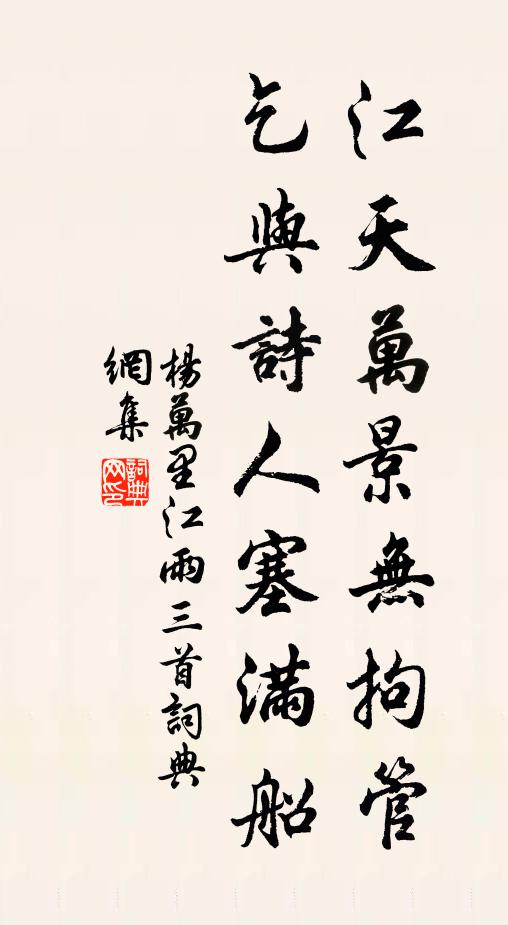 江天萬景無拘管
乞與詩人塞滿船
楊萬里江雨三首詞典
網集
詞典網印